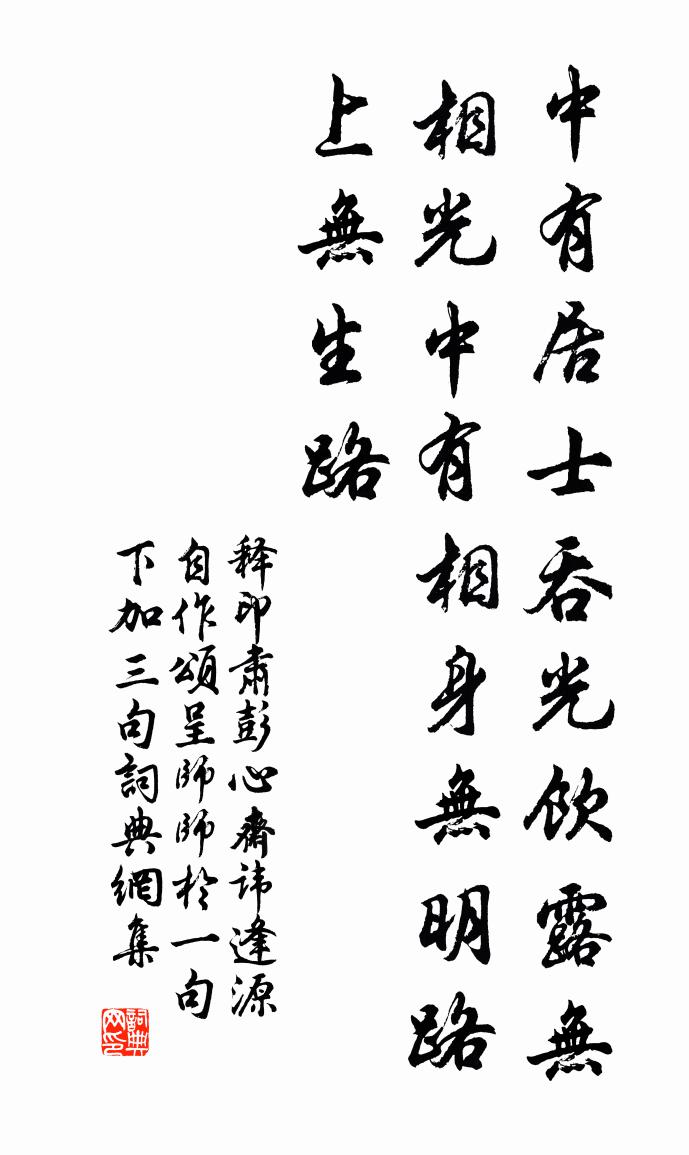 中有居士吞光飲露無
相光中有相身無明路
上無生路
释印肅彭心齋諱逢源
自作頌呈師師於一句
下加三句詞典網集
詞典
网印